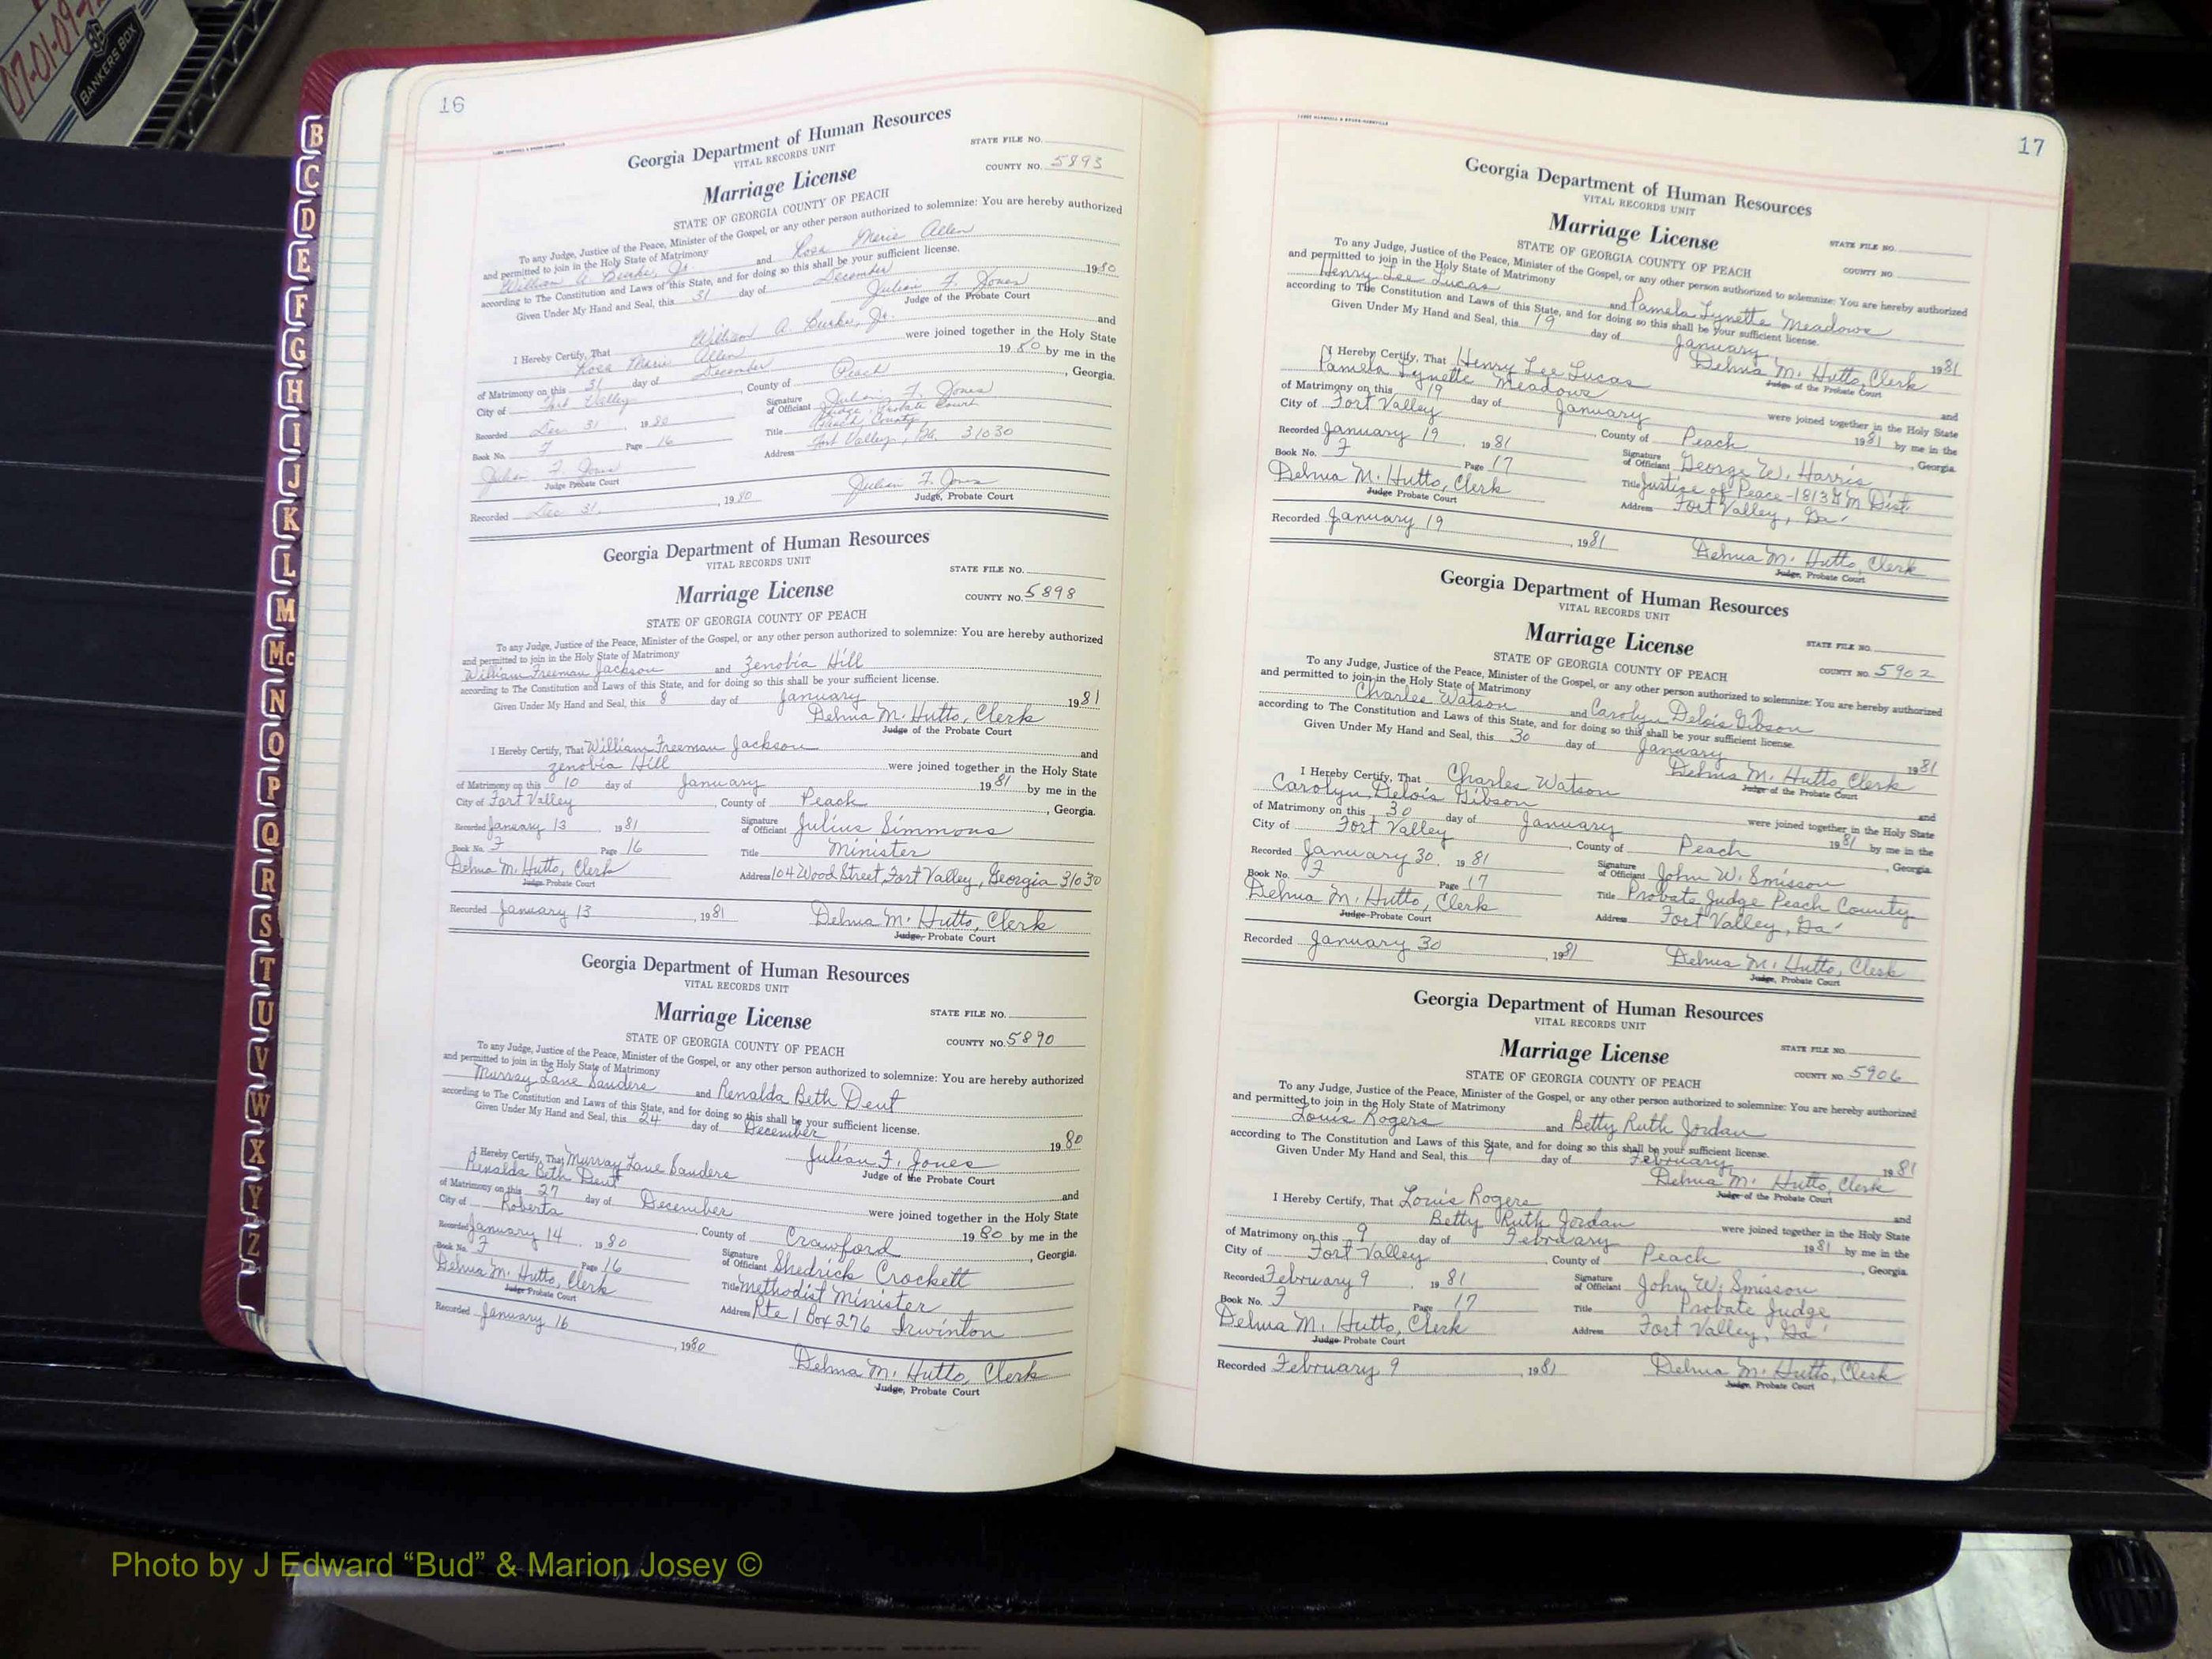 07-01-09
BANKERS BOX
B
C
D
E
F
G
H
I
J
K
L
M
Mc
N
O
P
Q
R
S
T
U
V
W
X
Y
Z
16
Georgia Department of Human Resources
VITAL RECORDS UNIT
STATE FILE NO.
Marriage License
COUNTY NO. 5893
STATE OF GEORGIA COUNTY OF PEACH
To any Judge, Justice of the Peace, Minister of the Gospel, or any other person authorized to solemnize: You are hereby authorized
and permitted to join in the Holy State of Matrimony
William A. Burke, Jr. and Rosa Marie Allen
according to The Constitution and Laws of this State, and for doing so this shall be your sufficient license.
Given Under My Hand and Seal, this 31 day of December 1980
Julian F. Jones
Judge of the Probate Court
I Hereby Certify, That William A. Burke, Jr. and
Rosa Marie Allen were joined together in the Holy State
of Matrimony on this 31 day of December 1980 by me in the
City of Fort Valley, County of Peach, Georgia.
Recorded Dec 31 1980 Signature of Officiant Julian F. Jones
Book No. 7 Page 16 Title Judge, Probate Court
Peach County
Julian F. Jones Address Fort Valley, Ga. 31030
Judge Probate Court
Recorded Dec 31, 1980 Julian F. Jones
Judge, Probate Court
Georgia Department of Human Resources
VITAL RECORDS UNIT
STATE FILE NO.
Marriage License
COUNTY NO. 5898
STATE OF GEORGIA COUNTY OF PEACH
To any Judge, Justice of the Peace, Minister of the Gospel, or any other person authorized to solemnize: You are hereby authorized
and permitted to join in the Holy State of Matrimony
William Freeman Jackson and Zenobia Hill
according to The Constitution and Laws of this State, and for doing so this shall be your sufficient license.
Given Under My Hand and Seal, this 8 day of January 1981
Delma M. Hutto, Clerk
Judge of the Probate Court
I Hereby Certify, That William Freeman Jackson and
Zenobia Hill were joined together in the Holy State
of Matrimony on this 10 day of January 1981 by me in the
City of Fort Valley, County of Peach, Georgia.
Recorded January 13 1981 Signature of Officiant Julius Simmons
Book No. 7 Page 16 Title Minister
Delma M. Hutto, Clerk Address 104 Wood Street, Fort Valley, Georgia 31030
Judge Probate Court
Recorded January 13, 1981 Delma M. Hutto, Clerk
Judge, Probate Court
Georgia Department of Human Resources
VITAL RECORDS UNIT
Marriage License
STATE FILE NO.
STATE OF GEORGIA COUNTY OF PEACH
COUNTY NO. 5890
To any Judge, Justice of the Peace, Minister of the Gospel, or any other person authorized to solemnize: You are hereby authorized
and permitted to join in the Holy State of Matrimony
Murray Lane Sanders and Renalda Beth Dent
according to The Constitution and Laws of this State, and for doing so this shall be your sufficient license.
Given Under My Hand and Seal, this 24 day of December 1980
Julian F. Jones
Judge of the Probate Court
I Hereby Certify, That Murray Lane Sanders and
Renalda Beth Dent were joined together in the Holy State
of Matrimony on this 27 day of December 1980 by me in the
City of Roberta, County of Crawford, Georgia.
Recorded January 14 1980 Signature of Officiant Shedrick Crockett
Book No. 7 Page 16 Title Methodist Minister
Delma M. Hutto, Clerk Address Rte 1 Box 276 Irwinton
Judge Probate Court
Recorded January 16, 1980 Delma M. Hutto, Clerk
Judge, Probate Court
17
Georgia Department of Human Resources
VITAL RECORDS UNIT
Marriage License
STATE FILE NO.
STATE OF GEORGIA COUNTY OF PEACH
COUNTY NO.
To any Judge, Justice of the Peace, Minister of the Gospel, or any other person authorized to solemnize: You are hereby authorized
and permitted to join in the Holy State of Matrimony
Henry Lee Lucas and Pamela Lynette Meadows
according to The Constitution and Laws of this State, and for doing so this shall be your sufficient license.
Given Under My Hand and Seal, this 19 day of January 1981
Delma M. Hutto, Clerk
Judge of the Probate Court
I Hereby Certify, That Henry Lee Lucas and
Pamela Lynette Meadows were joined together in the Holy State
of Matrimony on this 19 day of January 1981 by me in the
City of Fort Valley, County of Peach, Georgia.
Recorded January 19, 1981 Signature of Officiant George W. Harris
Book No. 7 Page 17 Title Justice of Peace-1813 G M Dist.
Delma M. Hutto, Clerk Address Fort Valley, Ga.
Judge Probate Court
Recorded January 19, 1981 Delma M. Hutto, Clerk
Judge, Probate Court
Georgia Department of Human Resources
VITAL RECORDS UNIT
Marriage License
STATE FILE NO.
STATE OF GEORGIA COUNTY OF PEACH
COUNTY NO. 5902
To any Judge, Justice of the Peace, Minister of the Gospel, or any other person authorized to solemnize: You are hereby authorized
and permitted to join in the Holy State of Matrimony
Charles Watson and Carolyn Delois Gibson
according to The Constitution and Laws of this State, and for doing so this shall be your sufficient license.
Given Under My Hand and Seal, this 30 day of January 1981
Delma M. Hutto, Clerk
Judge of the Probate Court
I Hereby Certify, That Charles Watson and
Carolyn Delois Gibson were joined together in the Holy State
of Matrimony on this 30 day of January 1981 by me in the
City of Fort Valley, County of Peach, Georgia.
Recorded January 30, 1981 Signature of Officiant John W. Smisson
Book No. 7 Page 17 Title Probate Judge Peach County
Delma M. Hutto, Clerk Address Fort Valley, Ga.
Judge Probate Court
Recorded January 30, 1981 Delma M. Hutto, Clerk
Judge, Probate Court
Georgia Department of Human Resources
VITAL RECORDS UNIT
Marriage License
STATE FILE NO.
STATE OF GEORGIA COUNTY OF PEACH
COUNTY NO. 5906
To any Judge, Justice of the Peace, Minister of the Gospel, or any other person authorized to solemnize: You are hereby authorized
and permitted to join in the Holy State of Matrimony
Louis Rogers and Betty Ruth Jordan
according to The Constitution and Laws of this State, and for doing so this shall be your sufficient license.
Given Under My Hand and Seal, this 9 day of February 1981
Delma M. Hutto, Clerk
Judge of the Probate Court
I Hereby Certify, That Louis Rogers and
Betty Ruth Jordan were joined together in the Holy State
of Matrimony on this 9 day of February 1981 by me in the
City of Fort Valley County of Peach, Georgia.
Recorded February 9, 1981 Signature of Officiant John W. Smisson
Book No. 7 Page 17 Title Probate Judge
Delma M. Hutto, Clerk Address Fort Valley, Ga.
Judge Probate Court
Recorded February 9, 1981 Delma M. Hutto, Clerk
Judge, Probate Court
Photo by J Edward “Bud” & Marion Josey ©